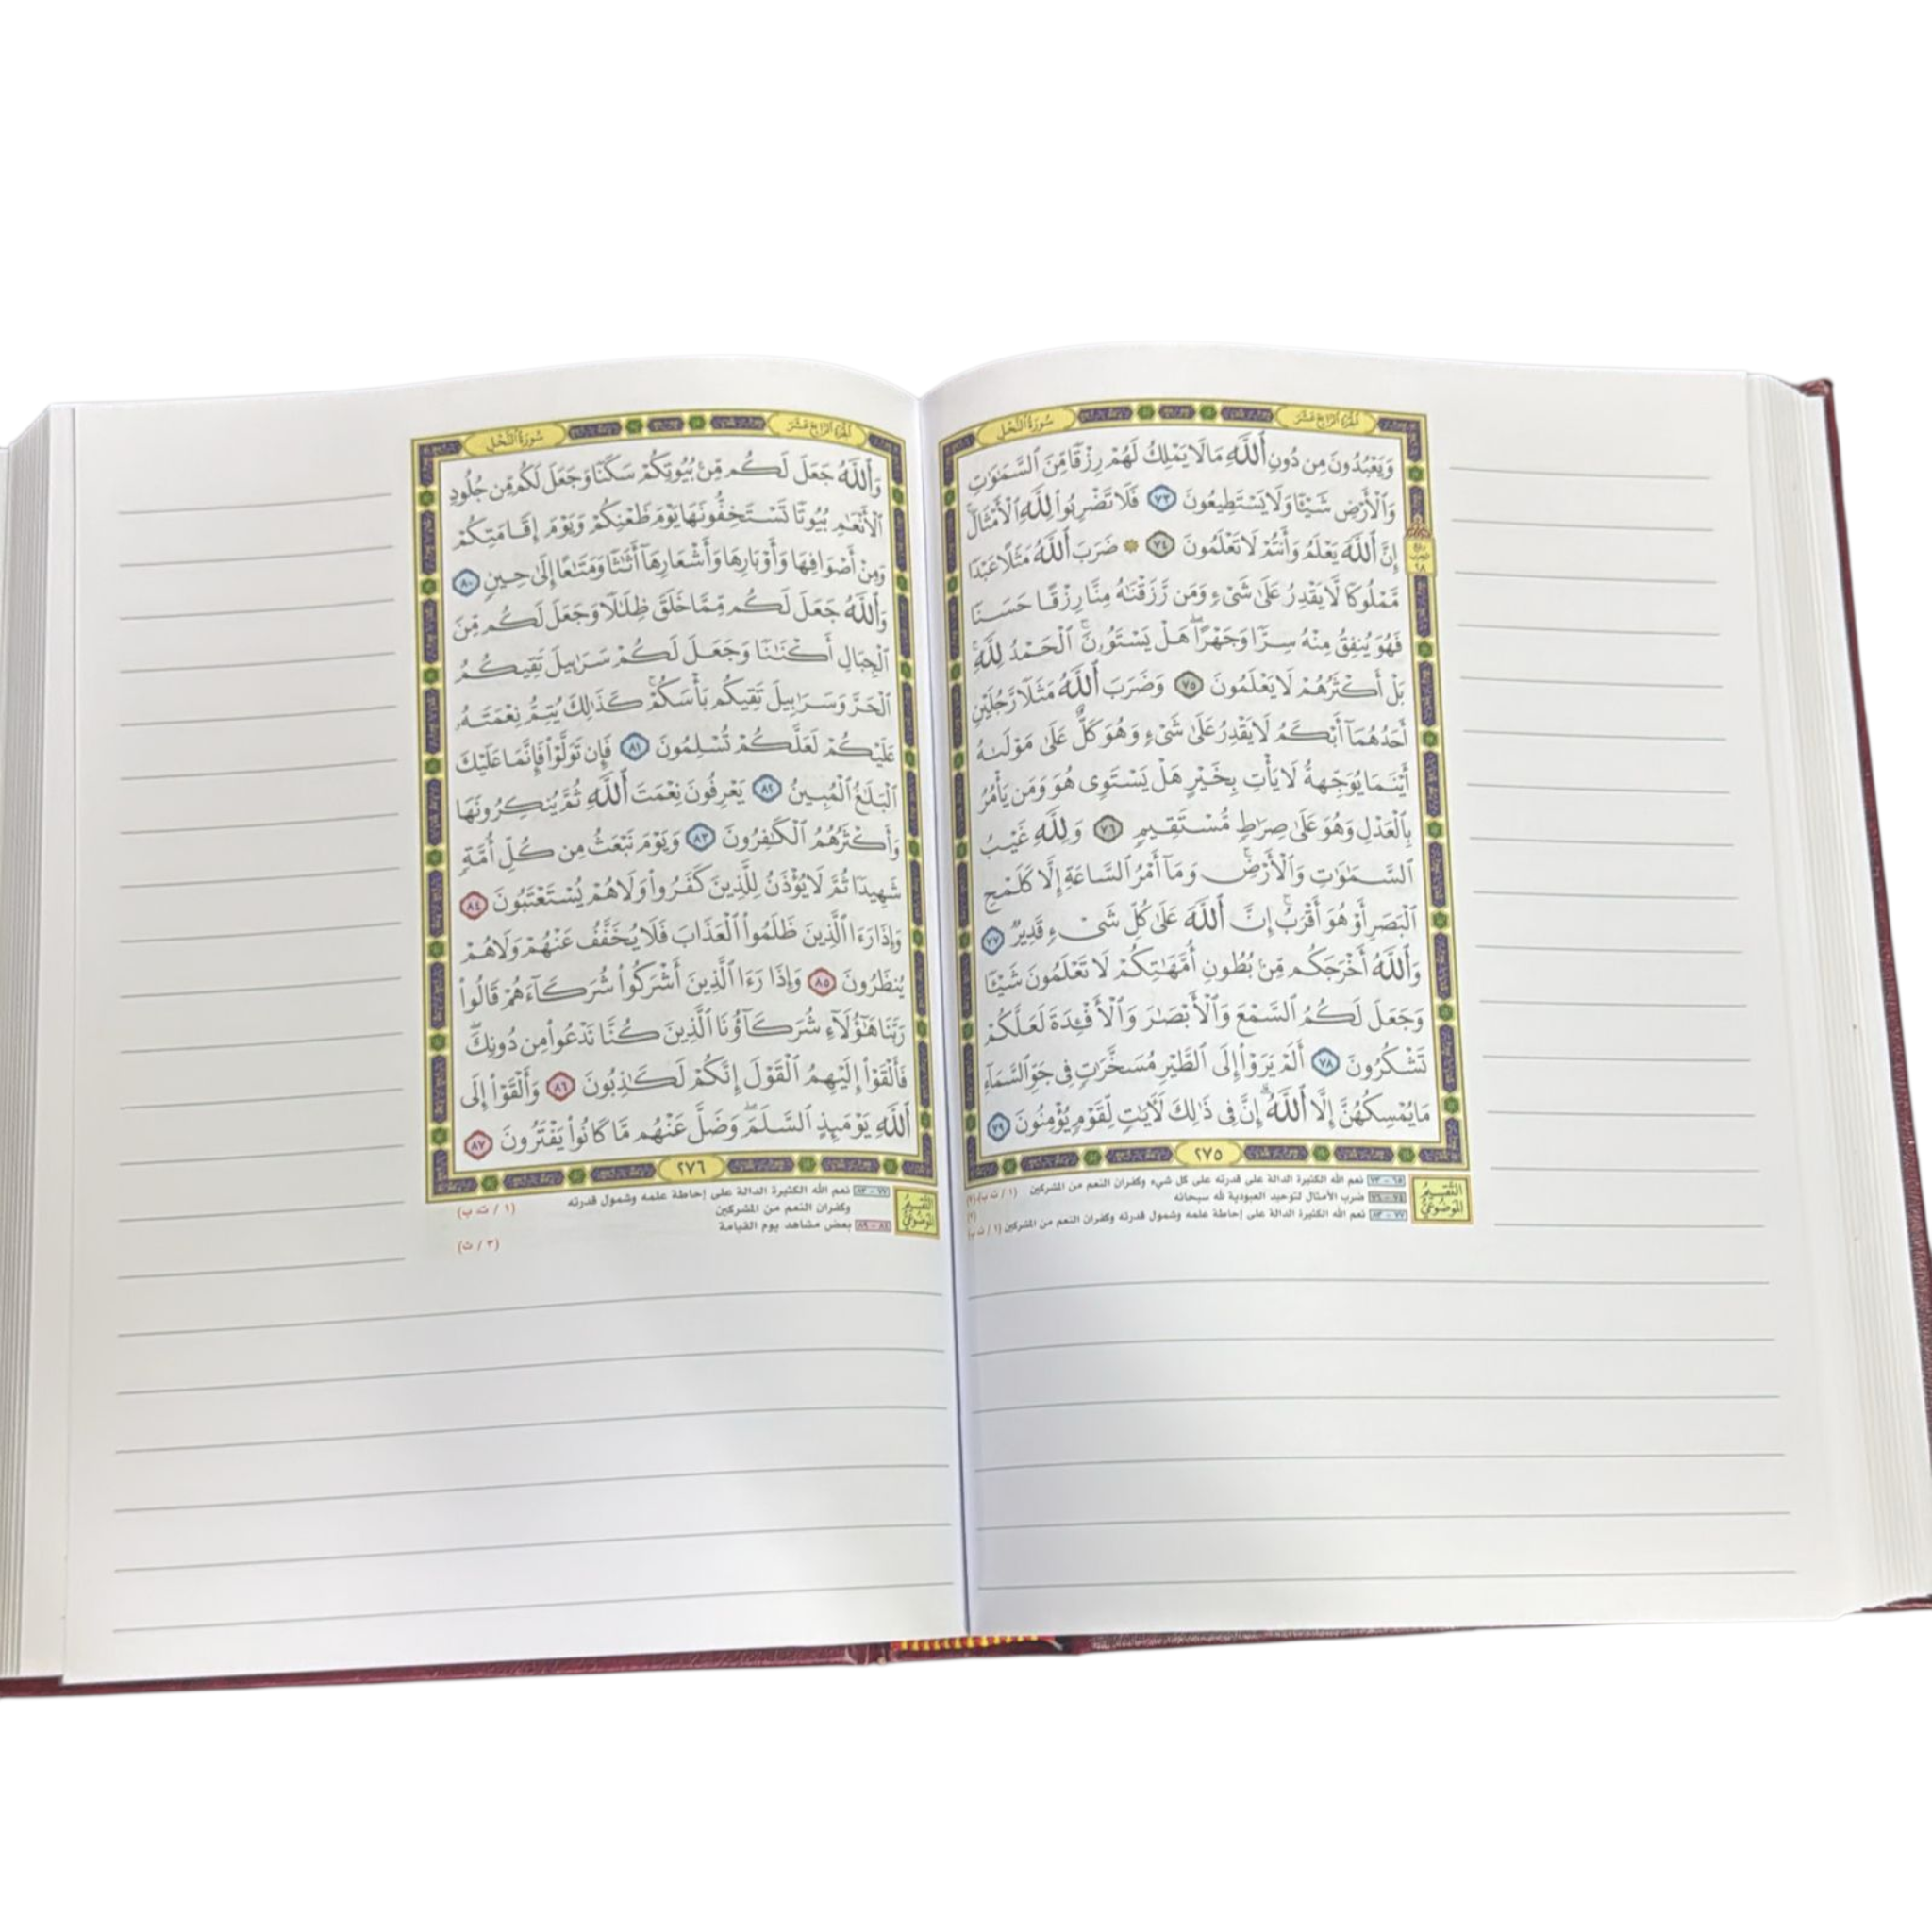 سُورَةُ النَّحْلِ
الجُزْءُ الرَّابِعَ عَشَرَ
وَيَعْبُدُونَ مِن دُونِ ٱللَّهِ مَا لَا يَمْلِكُ لَهُمْ رِزْقًا مِّنَ ٱلسَّمَٰوَٰتِ
وَٱلْأَرْضِ شَيْـًٔا وَلَا يَسْتَطِيعُونَ ٧٣ فَلَا تَضْرِبُوا۟ لِلَّهِ ٱلْأَمْثَالَ ۚ
إِنَّ ٱللَّهَ يَعْلَمُ وَأَنتُمْ لَا تَعْلَمُونَ ٧٤ ۞ ضَرَبَ ٱللَّهُ مَثَلًا عَبْدًا
مَّمْلُوكًا لَّا يَقْدِرُ عَلَىٰ شَىْءٍ وَمَن رَّزَقْنَٰهُ مِنَّا رِزْقًا حَسَنًا
فَهُوَ يُنفِقُ مِنْهُ سِرًّا وَجَهْرًا ۖ هَلْ يَسْتَوُۥنَ ۚ ٱلْحَمْدُ لِلَّهِ ۚ
بَلْ أَكْثَرُهُمْ لَا يَعْلَمُونَ ٧٥ وَضَرَبَ ٱللَّهُ مَثَلًا رَّجُلَيْنِ
أَحَدُهُمَآ أَبْكَمُ لَا يَقْدِرُ عَلَىٰ شَىْءٍ وَهُوَ كَلٌّ عَلَىٰ مَوْلَىٰهُ
أَيْنَمَا يُوَجِّههُّ لَا يَأْتِ بِخَيْرٍ هَلْ يَسْتَوِى هُوَ وَمَن يَأْمُرُ
بِٱلْعَدْلِ وَهُوَ عَلَىٰ صِرَٰطٍ مُّسْتَقِيمٍ ٧٦ وَلِلَّهِ غَيْبُ
ٱلسَّمَٰوَٰتِ وَٱلْأَرْضِ ۚ وَمَآ أَمْرُ ٱلسَّاعَةِ إِلَّا كَلَمْحِ
ٱلْبَصَرِ أَوْ هُوَ أَقْرَبُ ۚ إِنَّ ٱللَّهَ عَلَىٰ كُلِّ شَىْءٍ قَدِيرٌ ٧٧
وَٱللَّهُ أَخْرَجَكُم مِّنۢ بُطُونِ أُمَّهَٰتِكُمْ لَا تَعْلَمُونَ شَيْـًٔا
وَجَعَلَ لَكُمُ ٱلسَّمْعَ وَٱلْأَبْصَٰرَ وَٱلْأَفْـِٔدَةَ لَعَلَّكُمْ
تَشْكُرُونَ ٧٨ أَلَمْ يَرَوْا۟ إِلَى ٱلطَّيْرِ مُسَخَّرَٰتٍ فِى جَوِّ ٱلسَّمَآءِ
مَا يُمْسِكُهُنَّ إِلَّا ٱللَّهُ ۗ إِنَّ فِى ذَٰلِكَ لَءَايَٰتٍ لِّقَوْمٍ يُؤْمِنُونَ ٧٩
٢٧٥
التقسيم
الموضوعي
٦٥ - ٧٣ نعم الله الكثيرة الدالة على قدرته على كل شيء وكفران النعم من المشركين (١ / ت ب)
٧٤ - ٧٦ ضرب الأمثال لتوحيد العبودية لله سبحانه
٧٧ - ٨٣ نعم الله الكثيرة الدالة على إحاطة علمه وشمول قدرته وكفران النعم من المشركين (١ / ت ب)
سُورَةُ النَّحْلِ
الجُزْءُ الرَّابِعَ عَشَرَ
وَٱللَّهُ جَعَلَ لَكُم مِّنۢ بُيُوتِكُمْ سَكَنًا وَجَعَلَ لَكُم مِّن جُلُودِ
ٱلْأَنْعَٰمِ بُيُوتًا تَسْتَخِفُّونَهَا يَوْمَ ظَعْنِكُمْ وَيَوْمَ إِقَامَتِكُمْ
وَمِنْ أَصْوَافِهَا وَأَوْبَارِهَا وَأَشْعَارِهَآ أَثَٰثًا وَمَتَٰعًا إِلَىٰ حِينٍ ٨٠
وَٱللَّهُ جَعَلَ لَكُم مِّمَّا خَلَقَ ظِلَٰلًا وَجَعَلَ لَكُم مِّنَ
ٱلْجِبَالِ أَكْنَٰنًا وَجَعَلَ لَكُمْ سَرَٰبِيلَ تَقِيكُمُ
ٱلْحَرَّ وَسَرَٰبِيلَ تَقِيكُم بَأْسَكُمْ ۚ كَذَٰلِكَ يُتِمُّ نِعْمَتَهُۥ
عَلَيْكُمْ لَعَلَّكُمْ تُسْلِمُونَ ٨١ فَإِن تَوَلَّوْا۟ فَإِنَّمَا عَلَيْكَ
ٱلْبَلَٰغُ ٱلْمُبِينُ ٨٢ يَعْرِفُونَ نِعْمَتَ ٱللَّهِ ثُمَّ يُنكِرُونَهَا
وَأَكْثَرُهُمُ ٱلْكَٰفِرُونَ ٨٣ وَيَوْمَ نَبْعَثُ مِن كُلِّ أُمَّةٍ
شَهِيدًا ثُمَّ لَا يُؤْذَنُ لِلَّذِينَ كَفَرُوا۟ وَلَا هُمْ يُسْتَعْتَبُونَ ٨٤
وَإِذَا رَءَا ٱلَّذِينَ ظَلَمُوا۟ ٱلْعَذَابَ فَلَا يُخَفَّفُ عَنْهُمْ وَلَا هُمْ
يُنظَرُونَ ٨٥ وَإِذَا رَءَا ٱلَّذِينَ أَشْرَكُوا۟ شُرَكَآءَهُمْ قَالُوا۟
رَبَّنَا هَٰٓؤُلَآءِ شُرَكَآؤُنَا ٱلَّذِينَ كُنَّا نَدْعُوا۟ مِن دُونِكَ ۖ
فَأَلْقَوْا۟ إِلَيْهِمُ ٱلْقَوْلَ إِنَّكُمْ لَكَٰذِبُونَ ٨٦ وَأَلْقَوْا۟ إِلَى
ٱللَّهِ يَوْمَئِذٍ ٱلسَّلَمَ ۖ وَضَلَّ عَنْهُم مَّا كَانُوا۟ يَفْتَرُونَ ٨٧
٢٧٦
التقسيم
الموضوعي
٧٧ - ٨٣ نعم الله الكثيرة الدالة على إحاطة علمه وشمول قدرته
وكفران النعم من المشركين (١ / ت ب)
٨٤ - ٨٩ بعض مشاهد يوم القيامة
(٣ / ث)